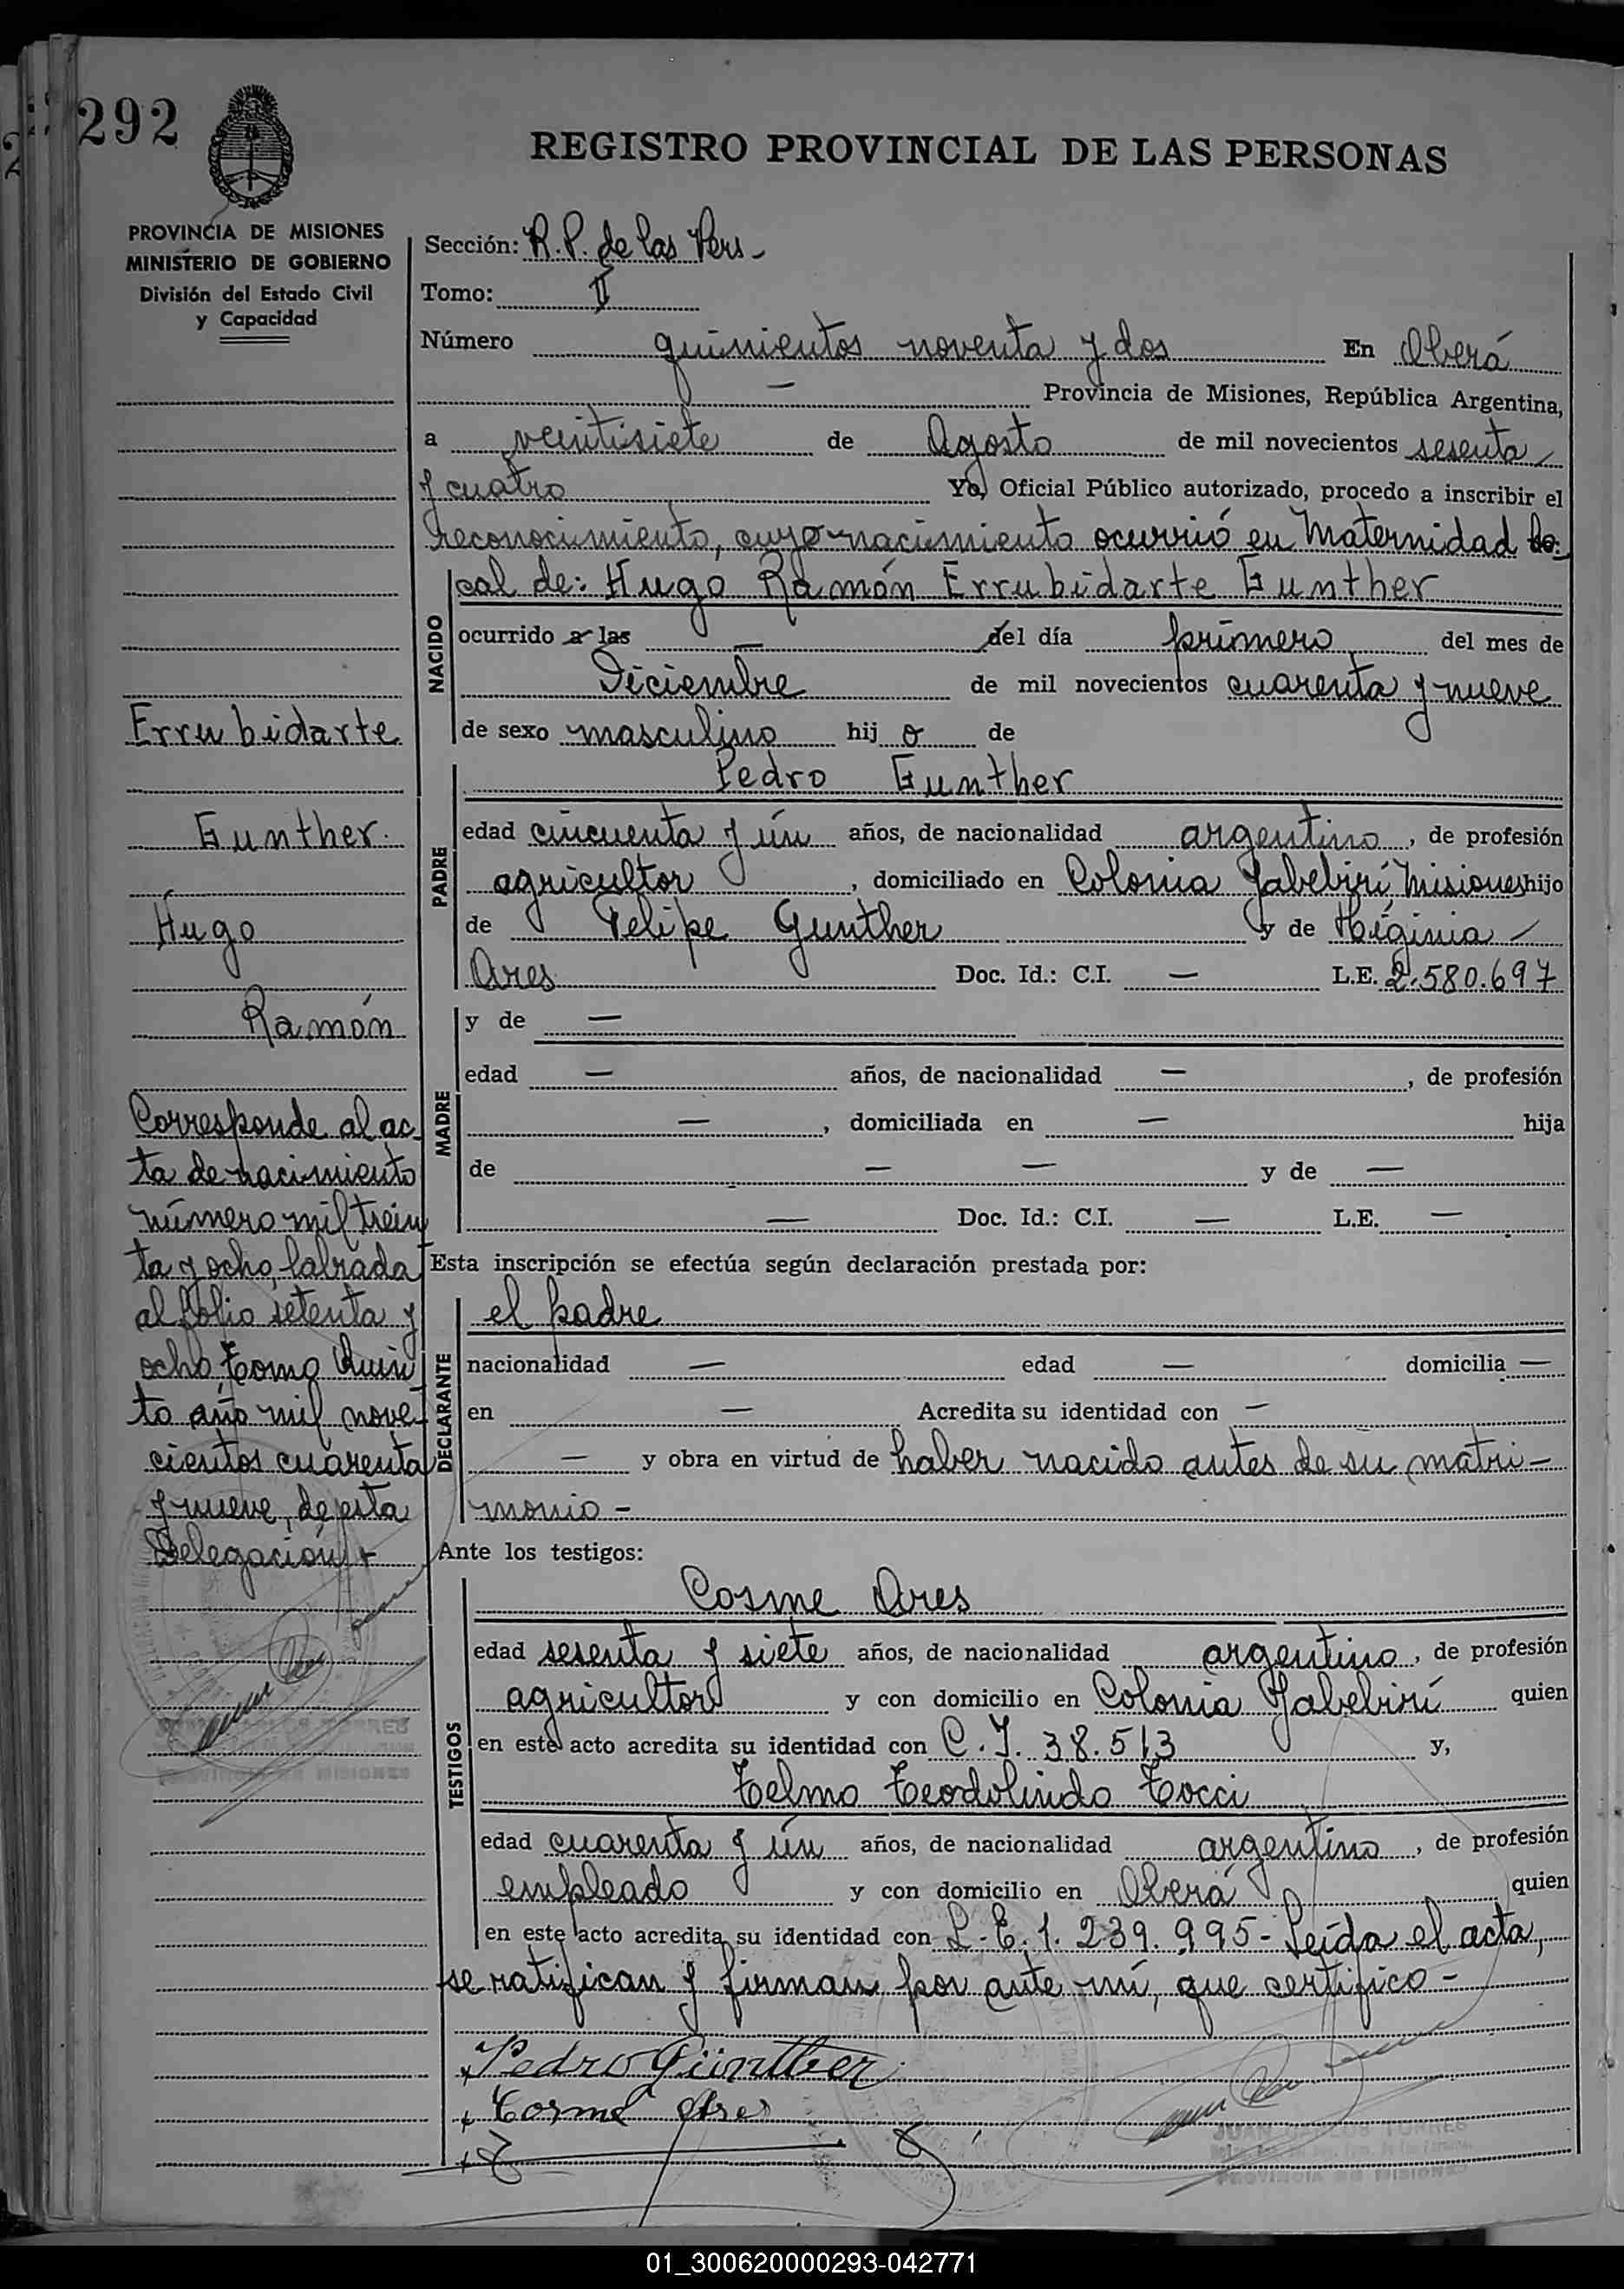 292
REGISTRO PROVINCIAL DE LAS PERSONAS
PROVINCIA DE MISIONES
MINISTERIO DE GOBIERNO
División del Estado Civil
y Capacidad
Sección: R.P. de las Pers-
Tomo: II
Número quinientos noventa y dos En Oberá
— Provincia de Misiones, República Argentina,
a veintisiete de Agosto de mil novecientos sesenta
y cuatro Yo, Oficial Público autorizado, procedo a inscribir el
reconocimiento, cuyo nacimiento ocurrió en Maternidad lo-
cal de: Hugo Ramón Errubidarte Gunther
NACIDO
ocurrido a las — del día primero del mes de
Diciembre de mil novecientos cuarenta y nueve
de sexo masculino hij o de
Pedro Gunther
PADRE
edad cincuenta y ún años, de nacionalidad argentino, de profesión
agricultor, domiciliado en Colonia Yabebirí, Misiones hijo
de Felipe Gunther y de Higinia –
Ares Doc. Id.: C.I. — L.E. 2.580.697
MADRE
y de —
edad — años, de nacionalidad —, de profesión
—, domiciliada en — hija
de — — y de —
— Doc. Id.: C.I. — L.E. —
Esta inscripción se efectúa según declaración prestada por:
DECLARANTE
el padre
nacionalidad — edad — domicilia —
en — Acredita su identidad con —
— y obra en virtud de haber nacido antes de su matri-
monio -
Ante los testigos:
TESTIGOS
Cosme Ares
edad sesenta y siete años, de nacionalidad argentino, de profesión
agricultor y con domicilio en Colonia Yabebirí quien
en este acto acredita su identidad con C.I. 38.513 y,
Telmo Teodolindo Tocci
edad cuarenta y ún años, de nacionalidad argentino, de profesión
empleado y con domicilio en Oberá quien
en este acto acredita su identidad con L.E. 1.239.995- Leída el acta,
se ratifican y firman por ante mí, que certifico -
Pedro Günther
Cosme Ares
JUAN CARLOS TORRES
PROVINCIA DE MISIONES
Errubidarte
Gunther.
Hugo
Ramón
Corresponde al ac-
ta de nacimiento
número mil trein
ta y ocho, labrada
al folio setenta y
ocho, Tomo Quin
to año mil nove-
cientos cuarenta
y nueve, de esta
Delegación
CARLOS TORRES
PROVINCIA DE MISIONES
01_300620000293-042771